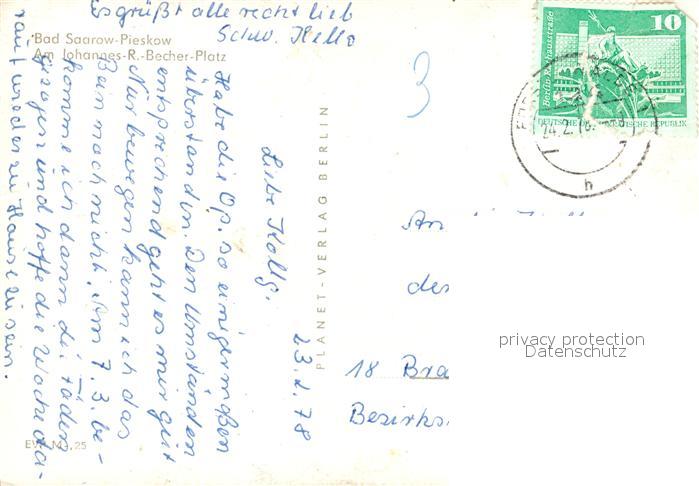 Bad Saarow-Pieskow
Am Johannes-R.-Becher-Platz
23.2.78
Liebe Kollg.
Habe die Op. so einigermaßen
überstanden. Den Umständen
entsprechend geht es mir gut
Nur bewegen kann ich das
Bein noch nicht. Am 7.3. be-
komme ich dann die Fäden
gezogen und hoffe die Woche da-
rauf wieder zu Hause zu sein.
Es grüßt alle recht lieb
Schw. Hella
3
PLANET-VERLAG BERLIN
EVP M -,25
10
Berlin Rathausstraße
DEUTSCHE DEMOKRATISCHE REPUBLIK
24.2.78
h
An
18 Bra
Bezirks
privacy protection
Datenschutz